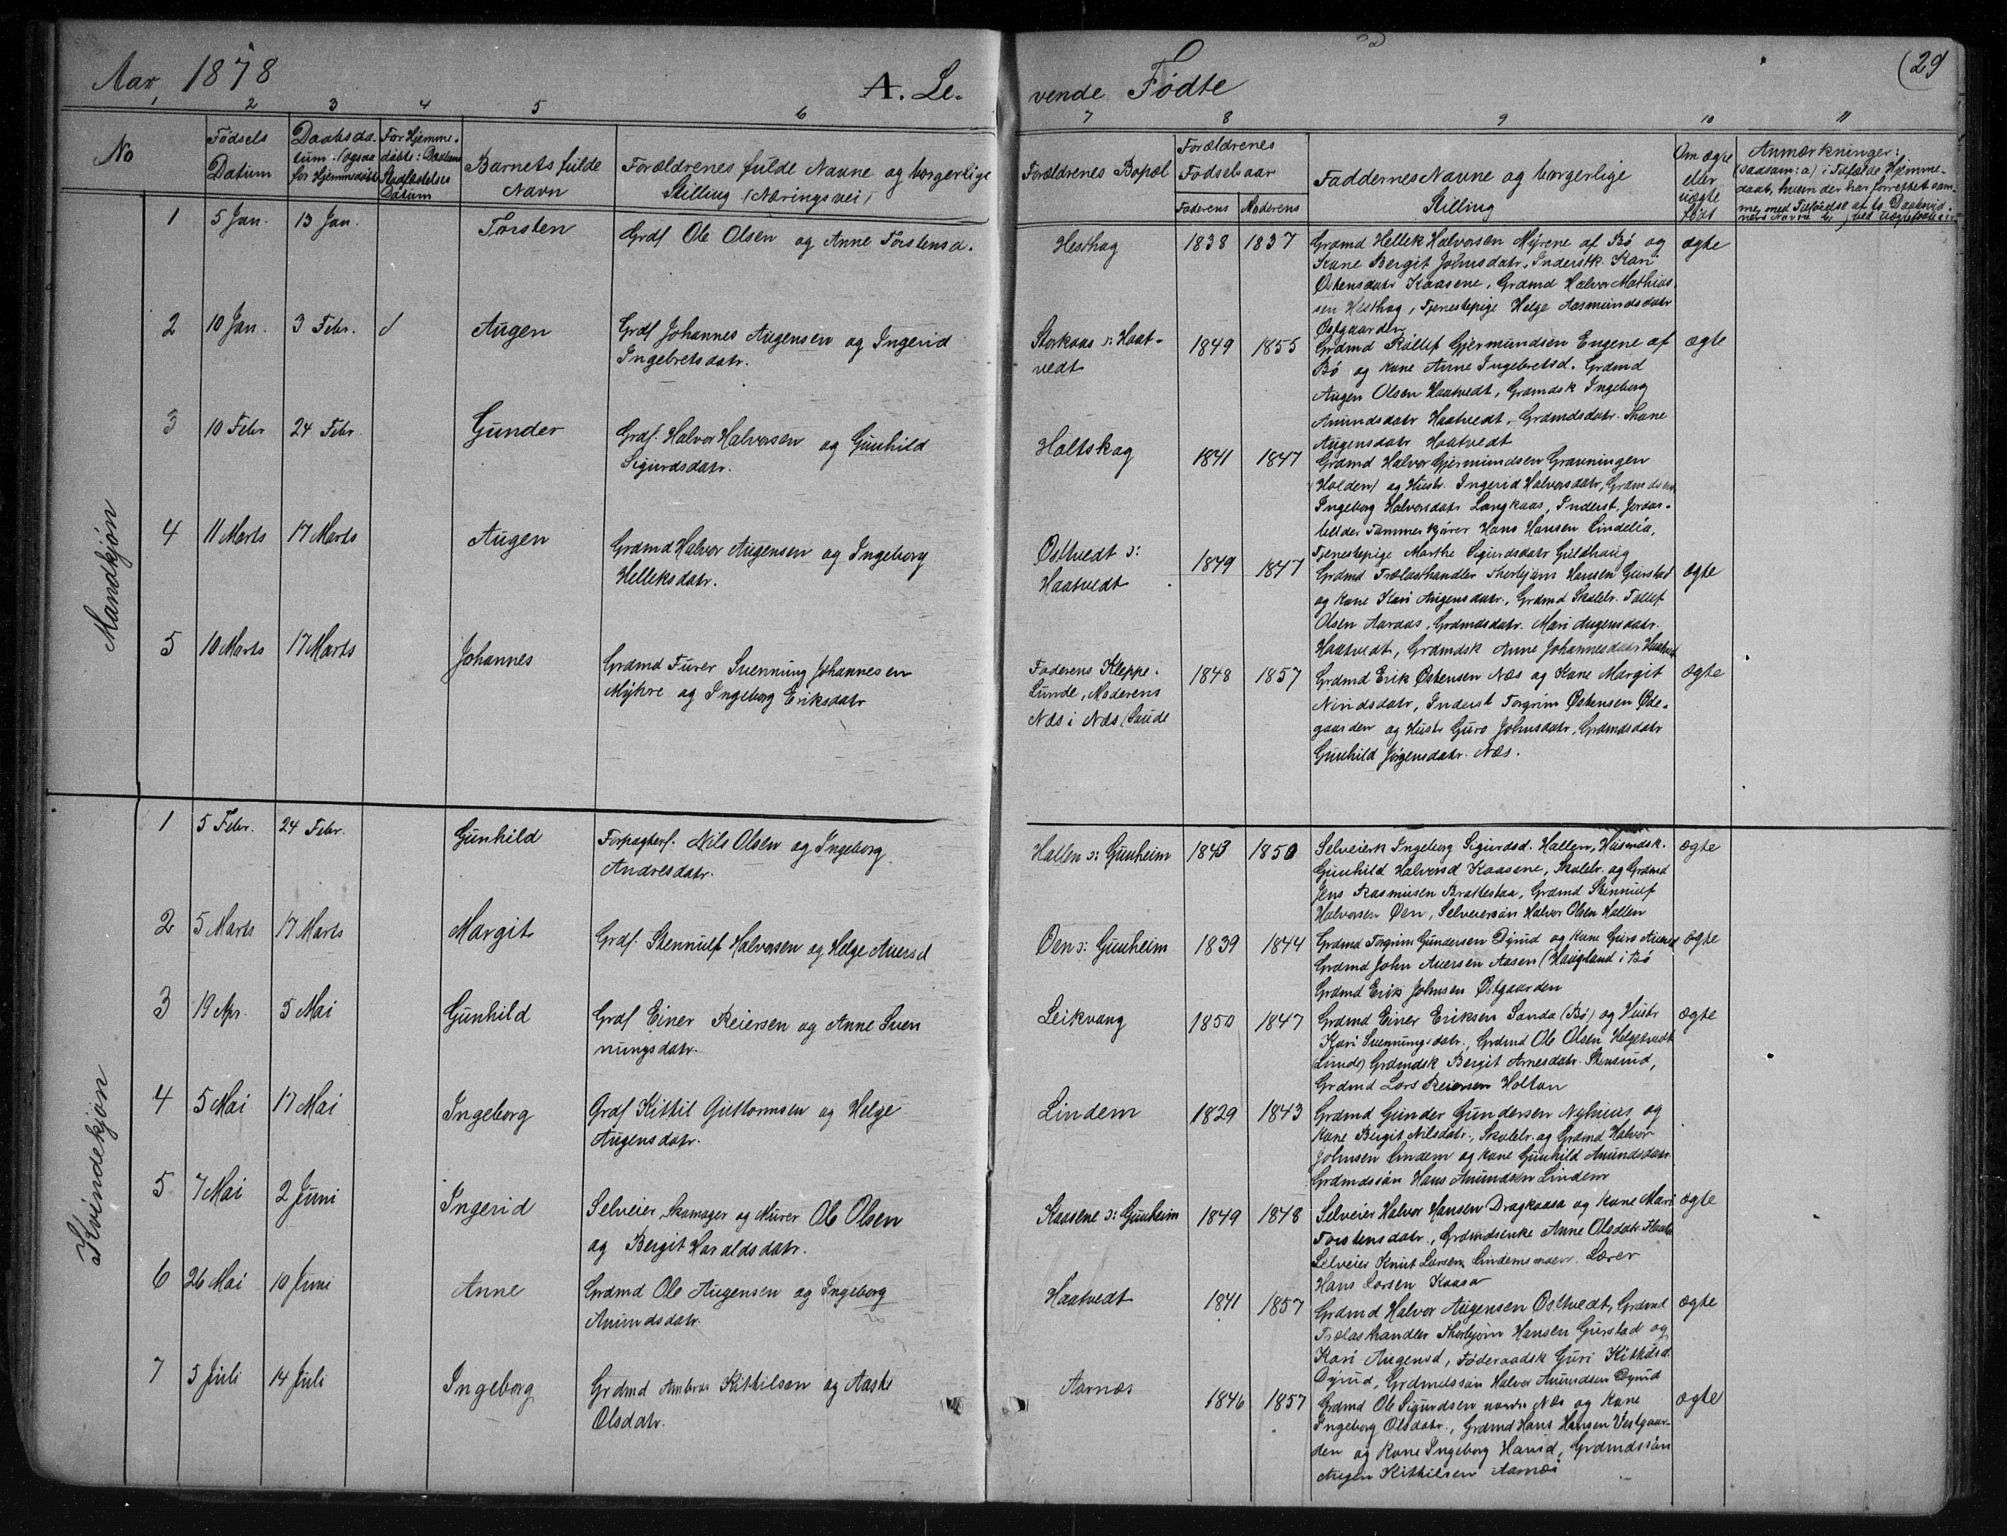 Aar, 1878
A. Le-
vende Fødte
(29
2 3 4 5 6 7 8 9 10 11
No
Fødsels Datum
Daabsda-
tum
for Hjemmedøbt
For Hjemme-
døbte: Daabens
Stadfæstelses
Datum
Barnets fulde
Navn
Forældrenes fulde Navne og borgerlige
Stilling (Næringsvei)
Forældrenes Bopæl
Forældrenes
Fødselsaar
Faderens Moderens
Faddernes Navne og borgerlige
Stilling
Om ægte
eller
uægte
født
Anmærkninger:
Mandkjøn
1 5 Jan. 13 Jan. Torsten
Grdf Ole Olsen og Anne Torstensd.
Hesthag 1838 1837
Grdmd Hellek Halvorsen Myrene af Bø og
Kone Bergit Johnsdatr, Inderstk. Kari
Østensdatr Kaasene, Grdmd Halvor Mathias-
sen Hesthag, Tjenestepige Helge Aasmundsdatr
Østgaarden
ægte
2 10 Jan. 3 Febr. d Augen
Grdf Johannes Augensen og Ingerid
Ingebretsdatr.
Storkaas ɔ: Haat-
vedt
1849 1855
Grdmd Rollef Gjermundsen Eugene af
Bø og Kone Anne Ingebretsd. Grdmd
Augen Olsen Haatvedt, Grdmdsk Ingeborg
Amundsdatr Haatvedt, Grdmdsdatr. Thone
Augensdatr Haatvedt
ægte
3 10 Febr 24 Febr. Gunder
Grdf. Halvor Halvorsen og Gunhild
Sigurdsdatr.
Holtskog 1841 1847
Grdmd Halvor Gjermundsen Grauningen
(Holden) og Hustr. Ingerid Halvorsdatr, Grdmdskn
Ingeborg Halvorsdatr Langkaas, Inderst, Jordar-
beider Tømmerkjører Hans Hansen Lindelia,
Tjenestepige Marthe Sigurdsdatr Guldhaug
4 11 Marts 17 Marts Augen
Grdmd Halvor Augensen og Ingeborg
Helleksdatr.
Østtvedt ɔ:
Haatvedt
1849 1847
Grdmd Trælasthandler Thorbjørn Hansen Gjerstad
og Kone Kari Augensdatr, Grdmd Skolelr. Tollef
Olsen Aaraas, Grdmdsdatr. Mari Augensdatr.
Haatvedt, Grdmdsk Anne Johannesdatr Haatvedt
ægte
5 10 Marts 17 Marts Johannes
Grdmd Furer Svennung Johannesen
Myhre og Ingeborg Eriksdatr
Faderens Kleppe-
Lunde, Moderens
Næs i Næs, Saude
1848 1857
Grdmd Erik Østensen Næs og Kone Margit
Niridsdatr, Inderst Torgrim Østensen Øde-
gaarden og Hustr Guro Johnsdatr, Grdmdsdatr
Gunhild Jørgensdatr. Næs.
ægte
Kvindekjøn
1 5 Febr. 24 Febr. Gunhild
Forpagterf. Nils Olsen og Ingeborg
Andresdatr.
Hallen ɔ: Gunheim 1843 1850
Selveierk Ingeborg Sigurdsd. Hallen, Husmdsk.
Gunhild Halvorsd Kaasene, Skolelr. og Grdmd
Jens Rasmusen Brattestaa, Grdmd Stennulf
Halvorsen Øen, Selveiersøn Halvor Olsen Hallen
ægte
2 5 Marts 17 Marts Margit
Grdf. Stennulf Halvorsen og Helge Auersd
Øen ɔ: Gunheim 1839 1844
Grdmd Torgrim Gundersen Dyrud og Kone Guro Auersd
Grdmd John Auersen Aasen (Haugland i Bø
Grdmd Erik Johnsen Østgaarden
ægte
3 19 Apr. 5 Mai Gunhild
Grdf Einer Reiersen og Anne Sven
nungsdatr.
Leikvang 1850 1847
Grdmd Einer Eriksen Sanda (Bø) og Hustr
Kari Svennungsdatr., Grdmd Ole Olsen Helgetvedt
Lunde) Grdmdsk Bergit Arnesdatr. Stensrud,
Grdmd Lars Reiersen Holtan
ægte
4 5 Mai 17 Mai Ingeborg
Grdf Kittil Guttormsen og Helge
Augensdatr.
Lindem 1829 1843
Grdmd Gunder Gundersen Nyhuus og
Kone Bergit Nilsdatr., Skolelr. og Grdmd Halvor
Johnsen Lindem og Kone Gunhild Amundsdatr
Grdmdssøn Hans Amundsen Lindem
ægte
5 7 Mai 2 Juni Ingerid
Selveier, Skomager og Murer Ole Olsen
og Bergit Haraldsdatr.
Kaasene ɔ: Gunheim 1849 1848
Selveier Halvor Hansen Dragkaasa og Kone Mari
Torstensdatr., Grdmdsenke Anne Olsdatr.
Selveier Knut Larsen Lindemsmoen. Lærer
Hans Larsen Kaasa
ægte
6 26 Mai 10 Juni Anne
Grdmd Ole Augensen og Ingeborg
Amundsdatr.
Haatvedt 1841 1857
Grdmd Halvor Augensen Østtvedt, Grdmd
Trælasthandler Thorbjørn Hansen Gjerstad og
Kari Augensd, Føderaadsk Guri Kittilsd.
Dyrud, Grdmdssøn Halvor Amundsen Dyrud
ægte
7 5 Juli 14 Juli Ingeborg
Grdmd Ambros Kittilsen og Aaste
Olsdatr.
Aarnæs 1846 1857
Grdmd Ole Sigurdsen nordre Næs og Kone
Ingeborg Olsdatr., Grdmd Hans Hansen Vestgaar-
den og Kone Ingeborg Hansd, Grdmdssøn
Augen Kittilsen Aarnæs
ægte